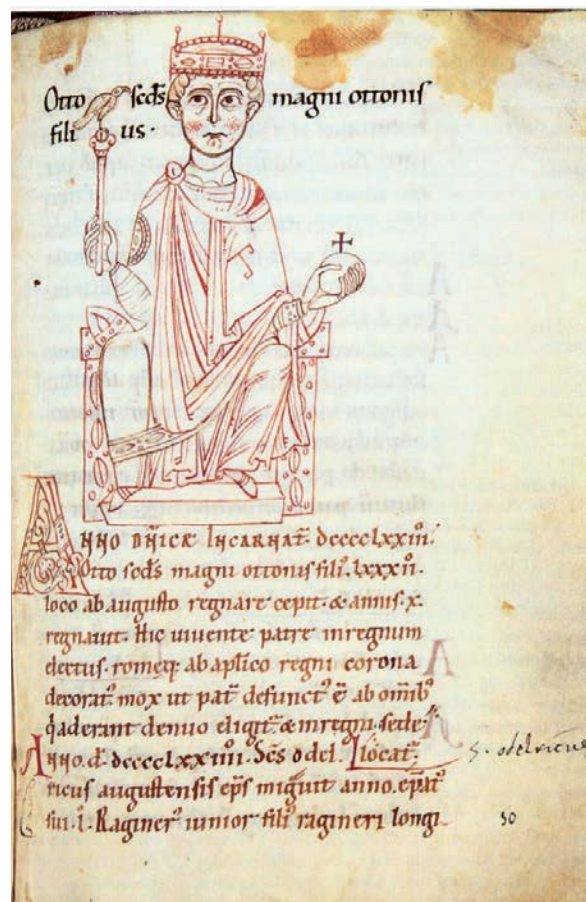 Otto scds magni ottonis
fili us.
Anno dnicę incarnat. dcccclxxiii.
Otto scds magni ottonis fili᷒. lxxxii.
loco ab augusto regnare cepit. & annis. x.
regnauit. Hic uiuente patre in regnum
electus. romęq; ab aplico regni corona
decorat᷒. mox ut pat̄ defunct᷒ ē ab omīb᷒
q̇ aderant denuo eligit᷒. & in regni sede
Anno. d. dcccclxxiiii. Scs odel locat᷒.
ricus augustensis eps migūit anno. epat᷒
sui. l. Raginer᷒ iunior fili᷒ ragineri longi
S. odelricus
50